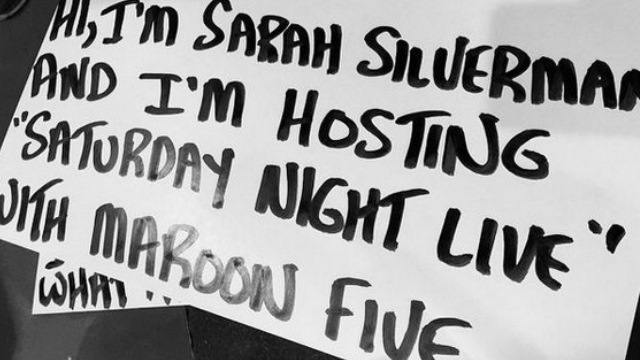 HI, I'M SARAH SILVERMAN
AND I'M HOSTING
"SATURDAY NIGHT LIVE"
WITH MAROON FIVE
WHAT